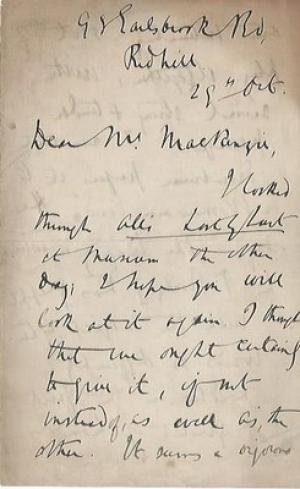 Earlsbrook Rd,
Redhill
29th Oct.
Dear Mr. Mackenzie,
I looked
through All's Lost by Lust
at Museum the other
day; I hope you will
look at it again. I though
that we ought certainly
to give it, if not
instead of, as well as, the
other. It seems a vigorous